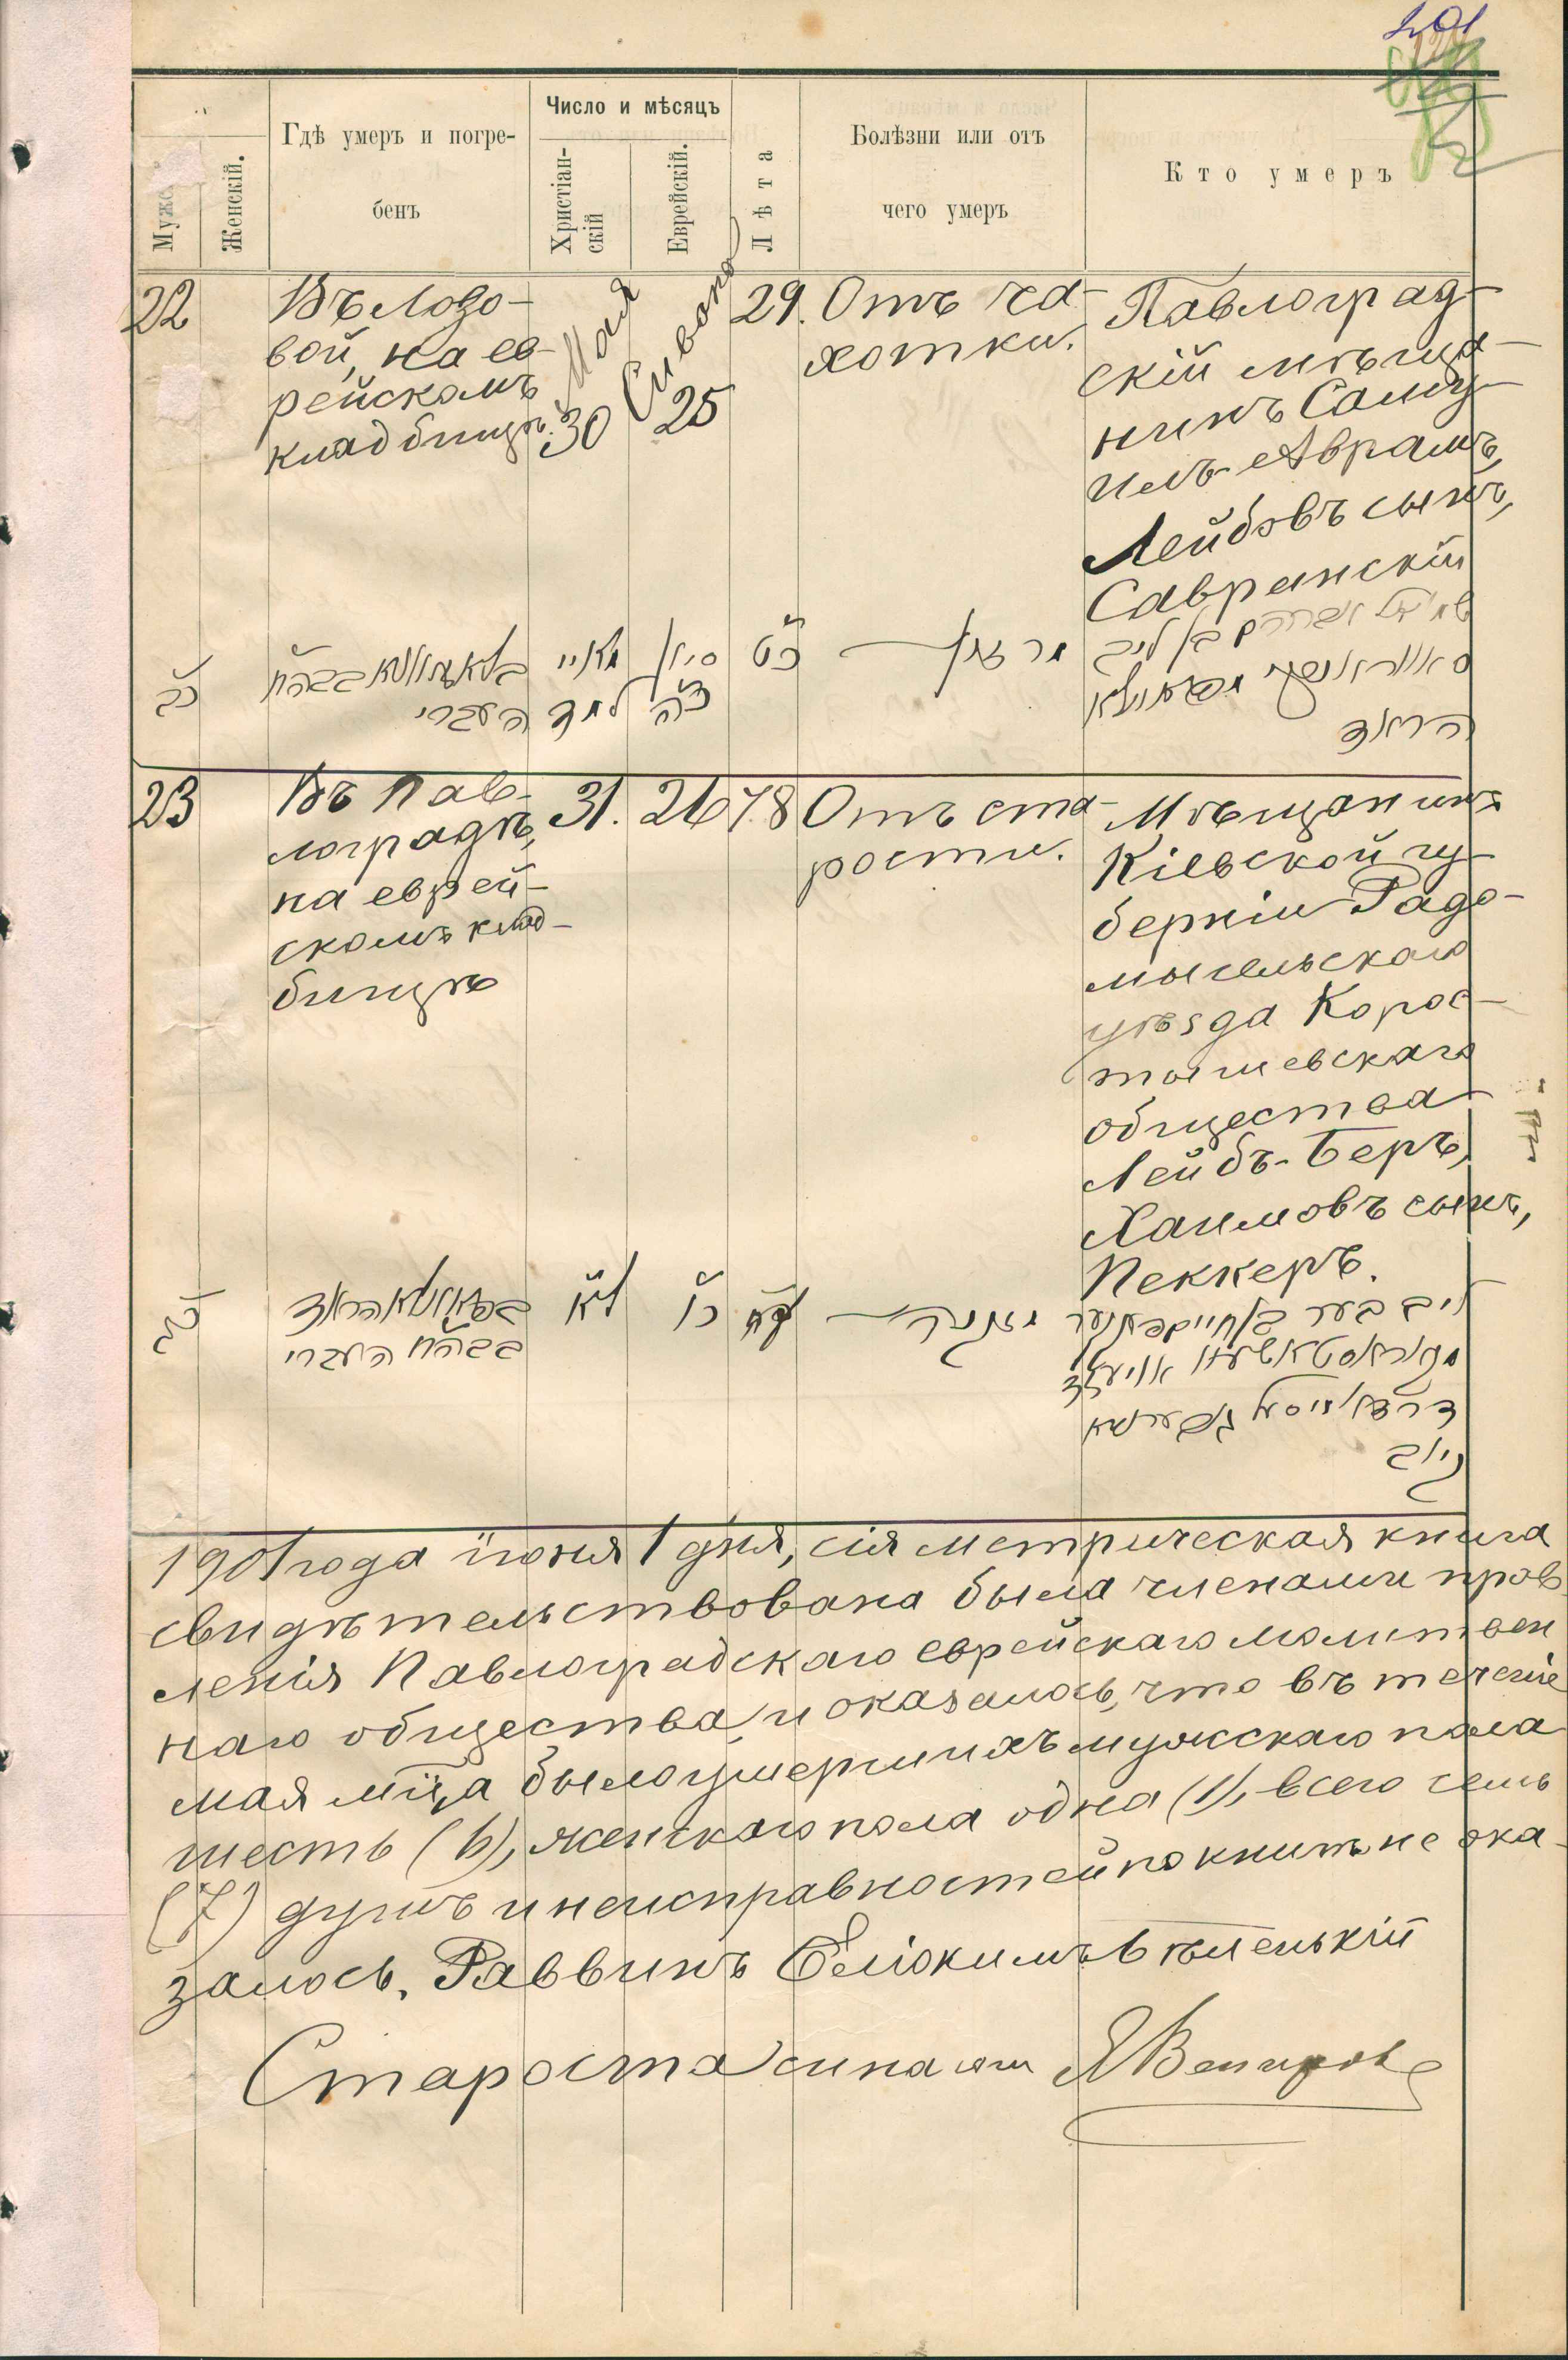 201
Число и мѣсяцъ
Гдѣ умеръ и погре-
бенъ
Женскій.
Христіан-
скій
Еврейскій.
Лѣта
Болѣзни или отъ
чего умеръ
Кто умеръ
22
Въ Лозо-
вой, на ев-
рейскомъ
кладбищѣ.
Мая
30
Сивона
25
29.
Отъ ча-
хотки.
Павлоград-
скій мѣща-
нинъ Саму-
илъ-Аврамъ,
Лейбовъ сынъ,
Савранскій
כב
בלאזאוואיא בבה״ח
העברי
מאיי
סיון
כ״ה
כ״ט
23
Въ Пав-
лоградѣ,
на еврей-
скомъ клад-
бищѣ
31.
26
78
Отъ ста-
рости.
Мѣщанинъ
Кіевской гу-
берніи Радо-
мысельскаго
уѣзда Корос-
тышевскаго
общества
Лейбъ-Беръ,
Хаимовъ сынъ,
Пеккеръ.
כג
בפאוולאגראד
בבה״ח העברי
ל״א
כ״ו
ע״ח
מזקנה
1901 года іюня 1 дня, сія метрическая книга
свидѣтельствована была членами прав
ленія Павлоградскаго еврейскаго молитвен
наго общества и оказалось, что въ теченіе
мая мца было умершихъ мужскаго пола
шесть (6), женскаго пола одна (1), всего семь
(7) душъ и неисправностей по книгѣ не ока-
залось. Раввинъ Еліокимъ Бѣленькій
Староста